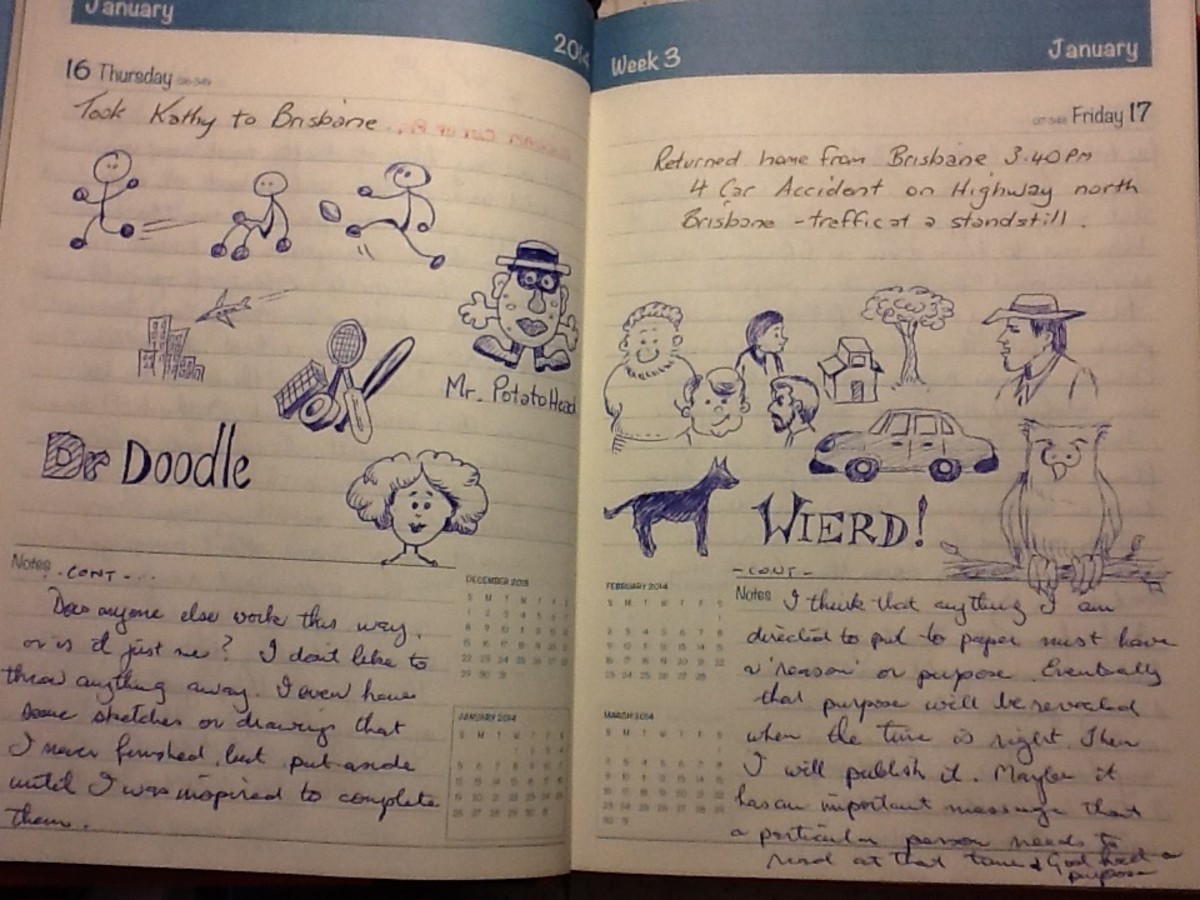 January
2014
16 Thursday
Took Kathy to Brisbane
Mr. Potato Head
Dr Doodle
Notes -CONT-...
Does anyone else work this way,
or is it just me? I dont like to
throw anything away. I even have
some sketches or drawings that
I never finished but put aside
until I was inspired to complete
them.
DECEMBER 2013
JANUARY 2014
Week 3
January
Friday 17
Returned home from Brisbane 3.40PM
4 Car Accident on Highway north
Brisbane - traffic at a standstill.
WIERD!
-CONT-
Notes I think that anything I am
directed to put to paper must have
a 'reason' or purpose. Eventually
that purpose will be revealed
when the time is right. Then
I will publish it. Maybe it
has an important message that
a particular person needs to
read at that time & God had a
purpose
FEBRUARY 2014
MARCH 2014